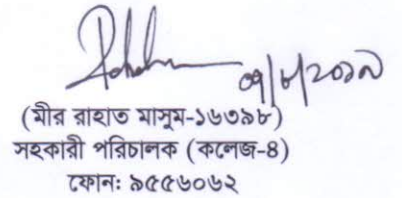 ০৭/৮/২০১৯
(মীর রাহাত মাসুম-১৬৩৯৮)
সহকারী পরিচালক (কলেজ-৪)
ফোনঃ ৯৫৫৬০৬২